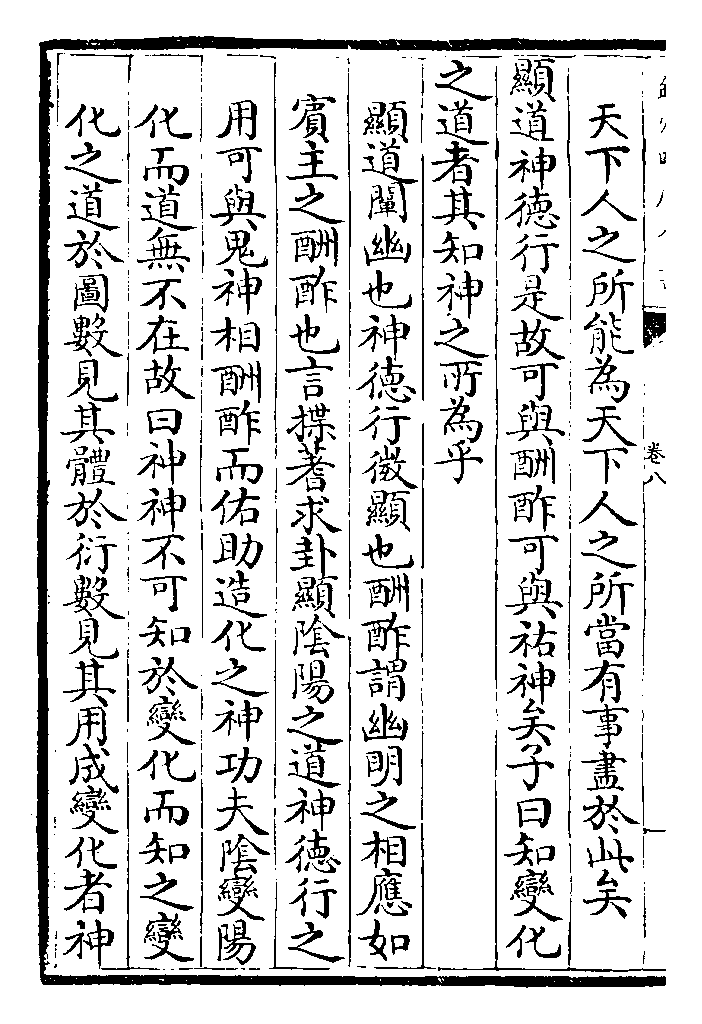 天下人之所能為天下人之所當有事盡於此矣
顯道神德行是故可與酬酢可與祐神矣子曰知變化
之道者其知神之所為乎
顯道闡幽也神德行微顯也酬酢謂幽明之相應如
賓主之酬酢也言揲蓍求卦顯陰陽之道神德行之
用可與鬼神相酬酢而佑助造化之神功夫陰變陽
化而道無不在故曰神神不可知於變化而知之變
化之道於圖數見其體於衍數見其用成變化者神
卷八